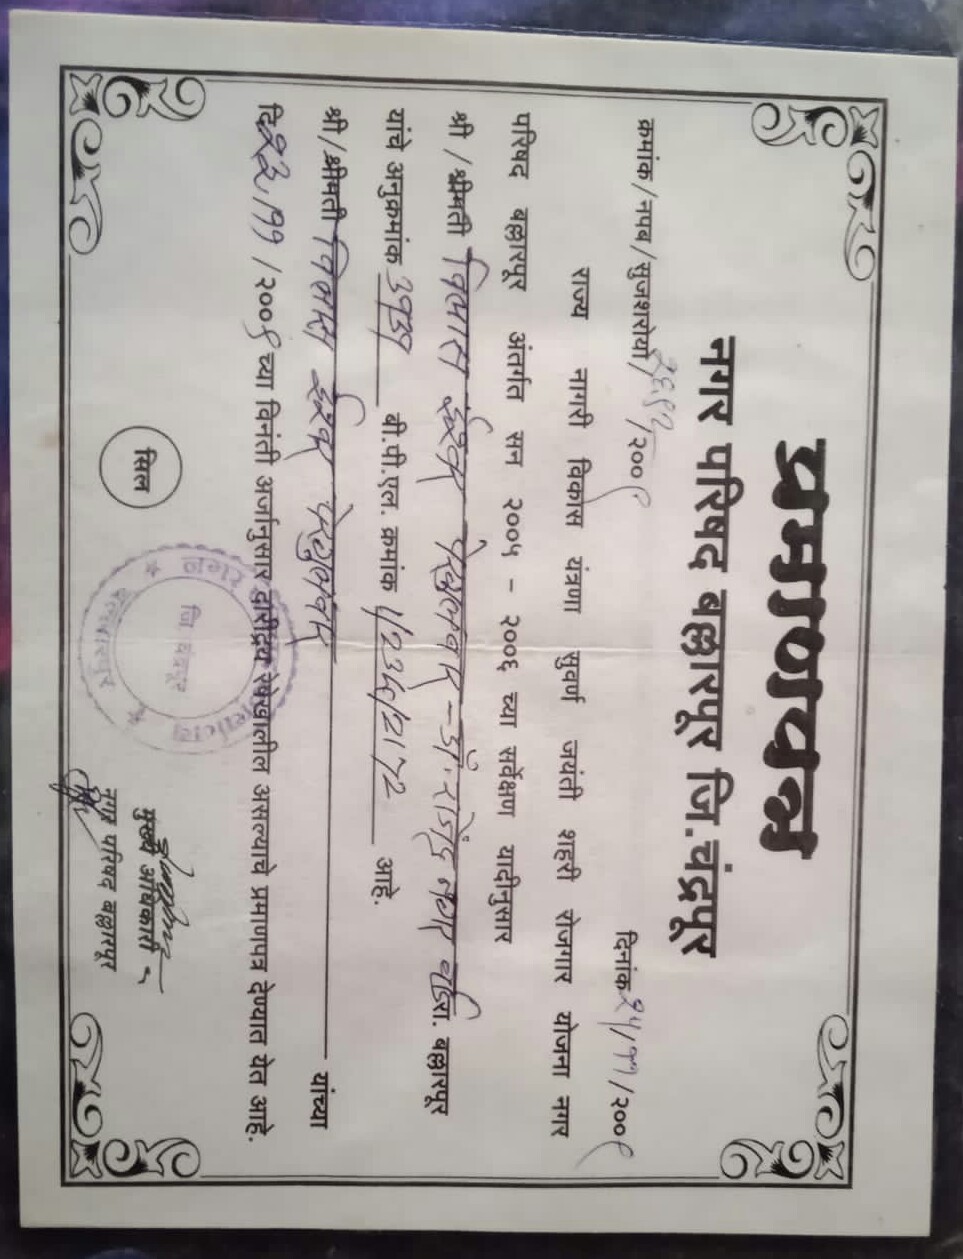 प्रमाणपत्र
नगर परिषद बल्लारपूर जि.चंद्रपूर
क्रमांक/नपब/सुजशरोयो/ /२००९ दिनांक २५/११/२००९
राज्य नागरी विकास यंत्रणा सुवर्ण जयंती शहरी रोजगार योजना नगर
परिषद बल्लारपूर अंतर्गत सन २००५ - २००६ च्या सर्वेक्षण यादीनुसार
श्री /श्रीमती विलास ईश्वर - डॉ. राजेंद्र वार्ड रा. बल्लारपूर
यांचे अनुक्रमांक बी.पी.एल. क्रमांक आहे.
श्री/श्रीमती विलास ईश्वर यांच्या
दि. २३/११/२००९ च्या विनंती अर्जानुसार दारीद्र्य रेषेखालील असल्याचे प्रमाणपत्र देण्यात येत आहे.
सिल
मुख्य अधिकारी
नगर परिषद बल्लारपूर